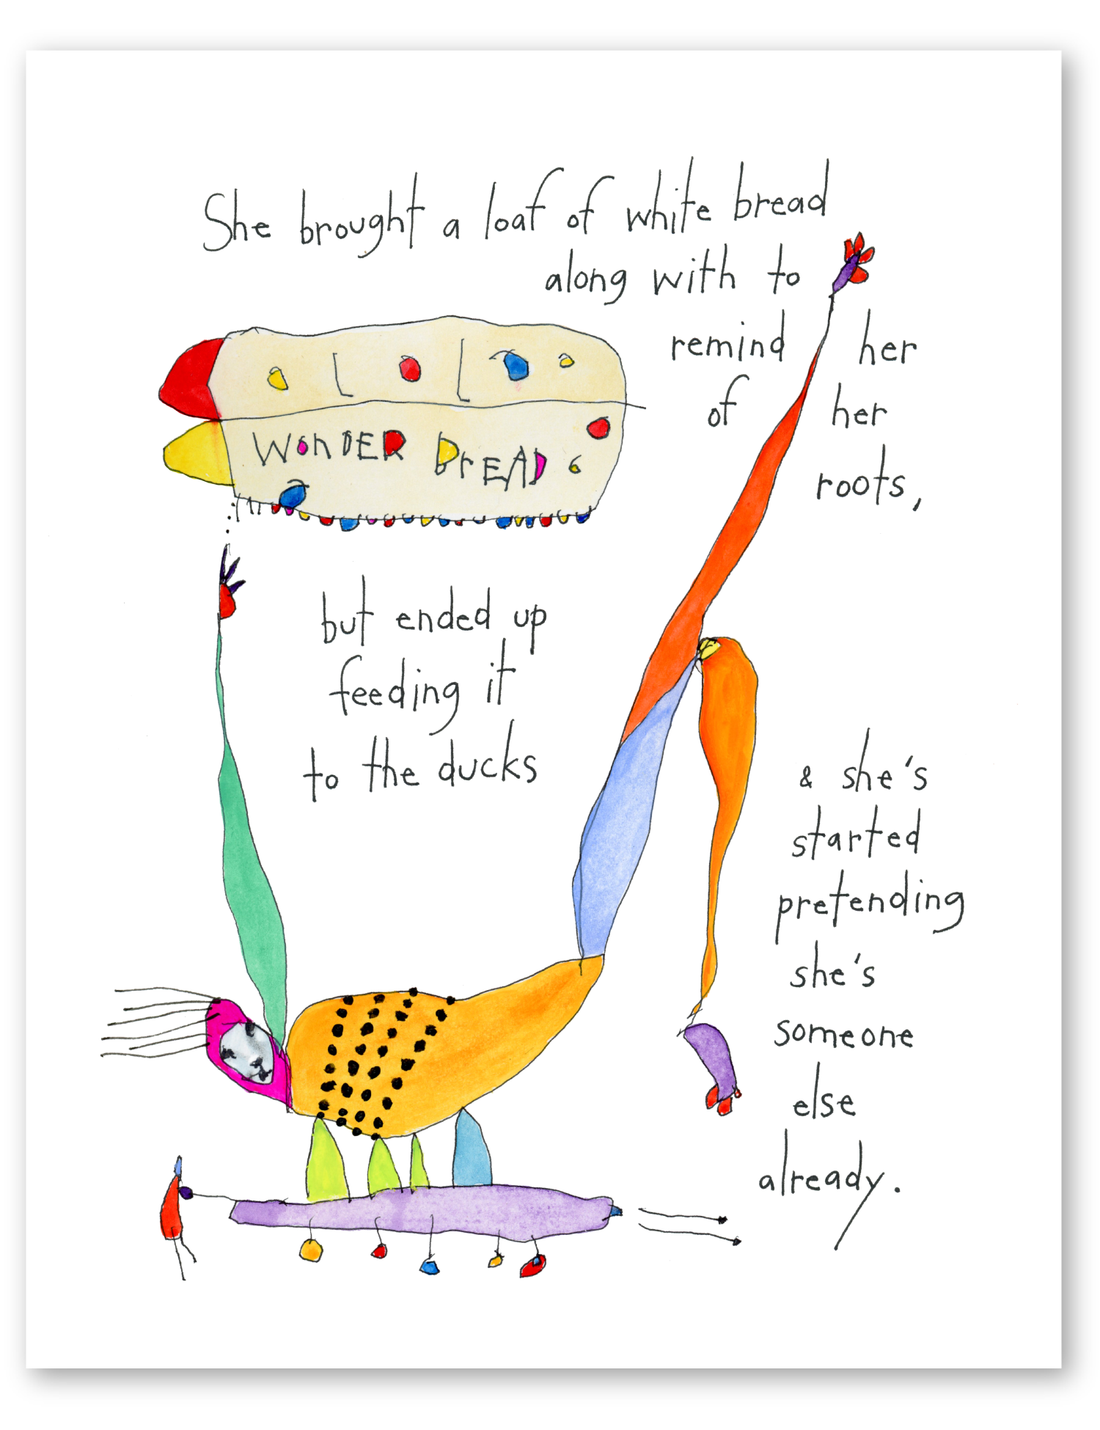 She brought a loaf of white bread
along with to
remind her
of her
roots,
WONDER BrEAD
but ended up
feeding it
to the ducks
& she's
started
pretending
she's
someone
else
already.